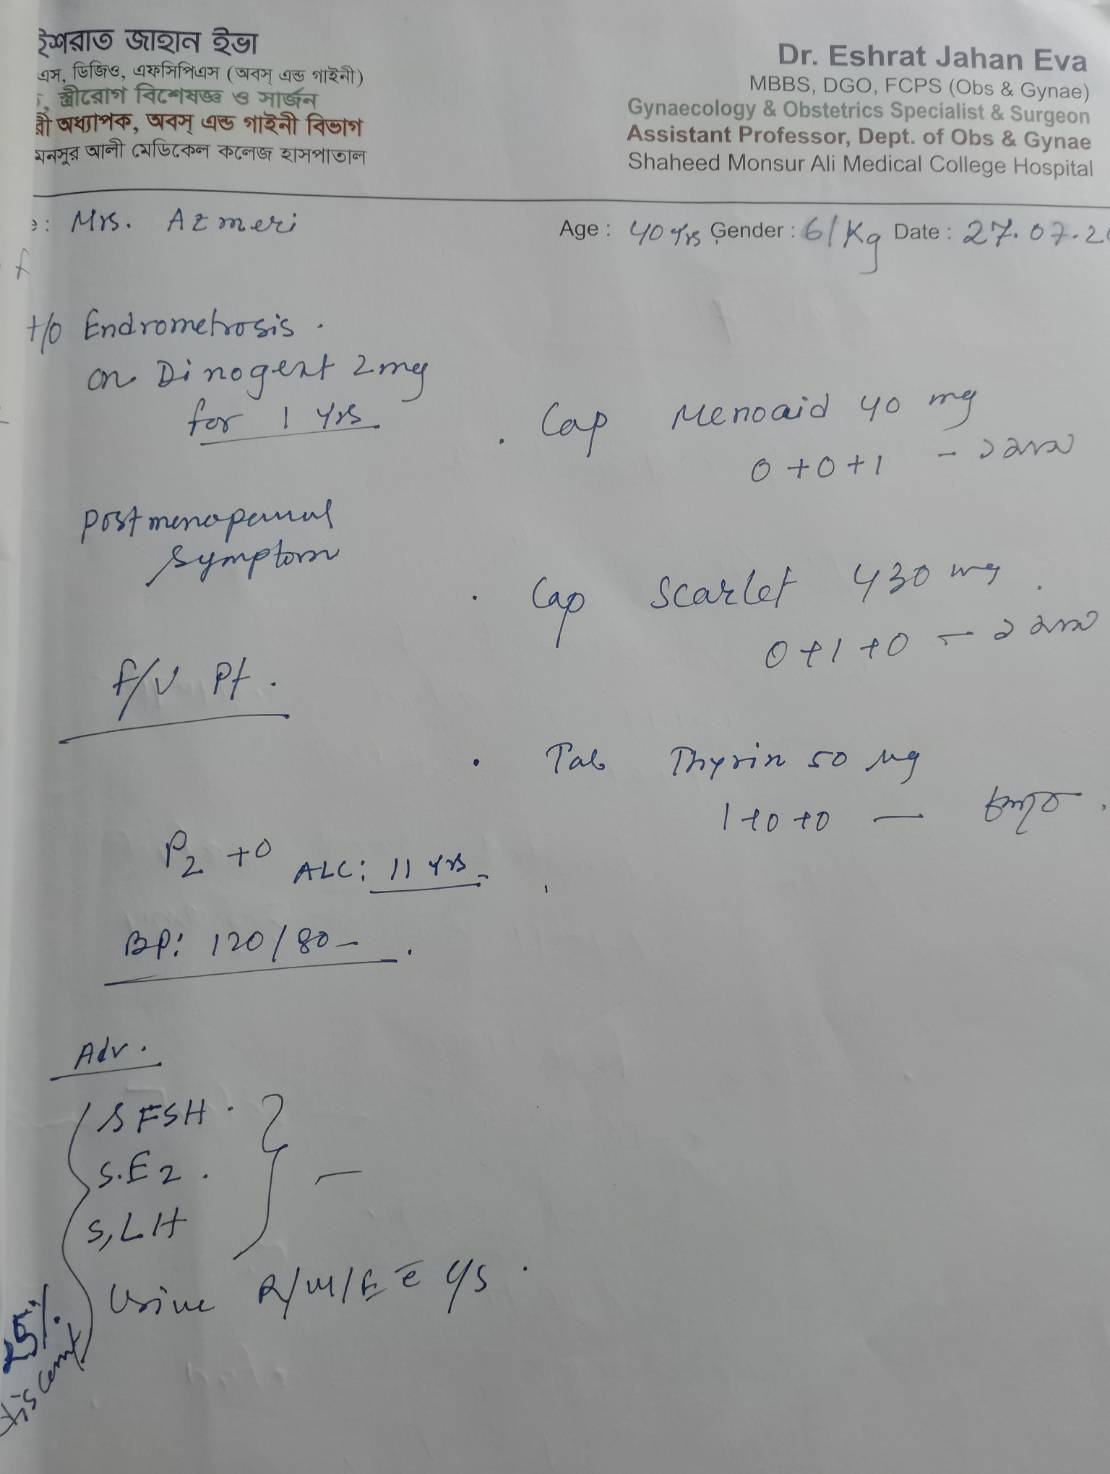 ইশরাত জাহান ইভা
এস, ডিজিও, এফসিপিএস (অবস্ এন্ড গাইনী)
স্ত্রীরোগ বিশেষজ্ঞ ও সার্জন
অধ্যাপক, অবস্ এন্ড গাইনী বিভাগ
মনসুর আলী মেডিকেল কলেজ হাসপাতাল
Dr. Eshrat Jahan Eva
MBBS, DGO, FCPS (Obs & Gynae)
Gynaecology & Obstetrics Specialist & Surgeon
Assistant Professor, Dept. of Obs & Gynae
Shaheed Monsur Ali Medical College Hospital
: Mrs. Azmeri
Age : 40 yrs Gender : 61 Kg Date : 27.07.2
H/o Endrometrosis.
on Dinogest 2 mg
for 1 yrs
Postmenopausal
symptom
F/U Pt.
P2 +0 ALC: 11 yrs
BP: 120/80
Adv.
S FSH.
S.E2.
S, LH
Urine R/M/E c̄ C/S.
25%
discount
Cap Menoaid 40 mg
0+0+1 -
Cap Scarlet 430 mg
0+1+0 -
Tab Thyrin 50 µg
1+0+0 —